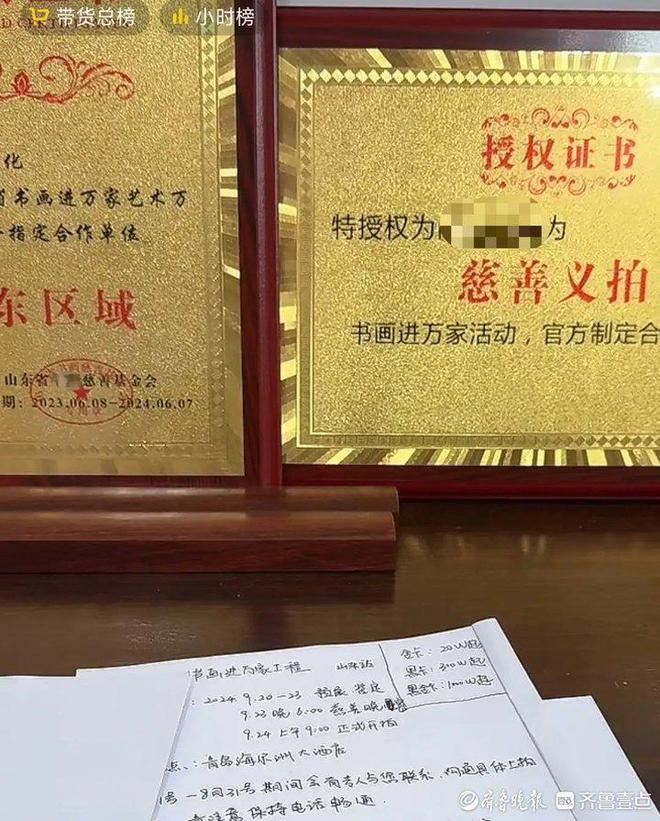 带货总榜
小时榜
化
省书画进万家艺术万
指定合作单位
东区域
山东省 慈善基金会
期：2023.06.08-2024.06.07
授权证书
特授权为 为
慈善义拍
书画进万家活动，官方制定合
书画进万家工程 山东站
金卡：20W起
黑卡：300W起
黑金卡：1000W起
：2024 9.20-23 预展 鉴定
9.23晚 6:00 慈善晚宴
9.24 上午 9:00 正式开拍
点：青岛海尔洲大酒店
1号-8月31号期间会有专人与您联系，沟通具体上拍
请注意保持电话畅通
齐鲁晚报 齐鲁壹点